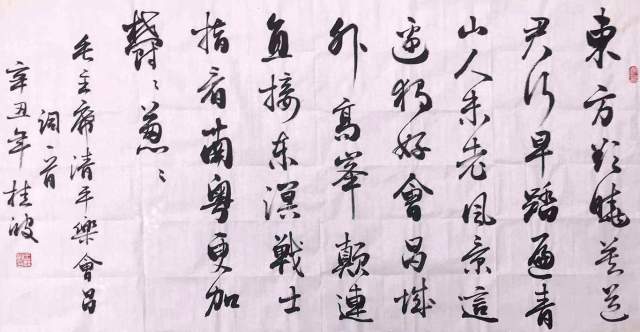 東方欲曉莫道
君行早踏遍青
山人未老风景這
邊獨好會昌城
外高峯顛連
直接东溟戰士
指看南粵更加
鬱〻葱〻
毛主席清平樂會昌
词一首
辛丑年桂波